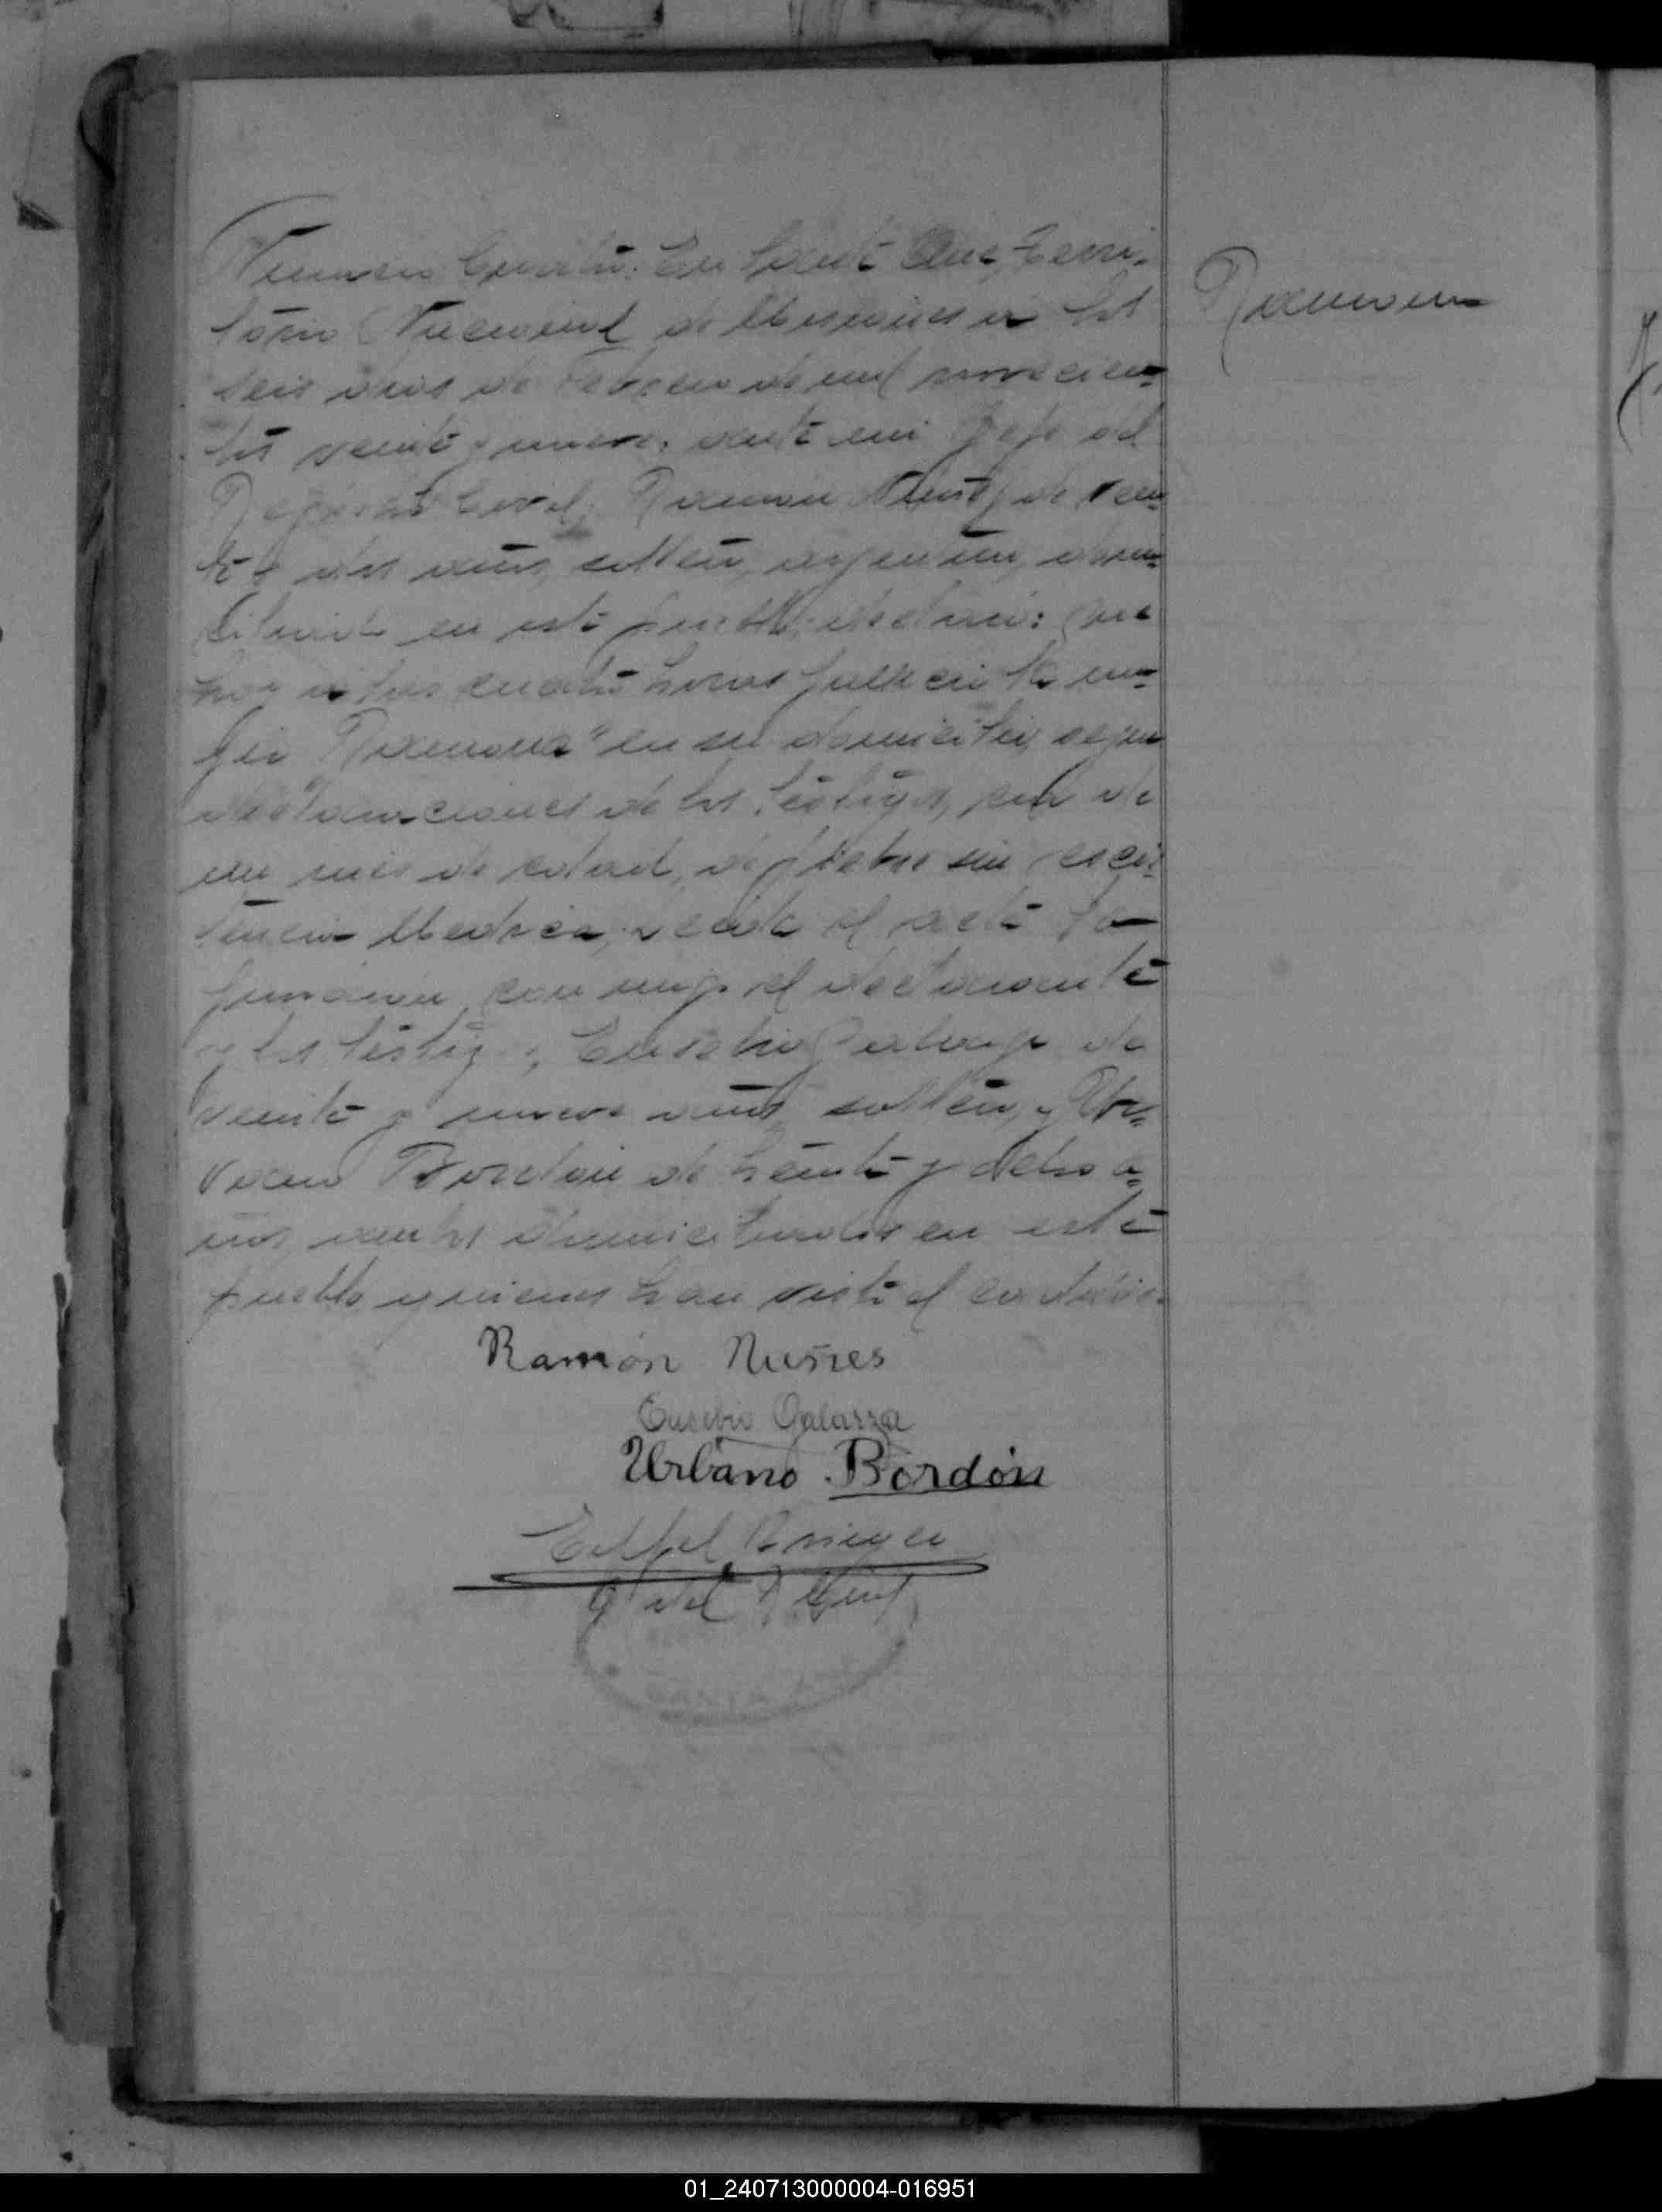 Numero Cuatro: En Santa Ana, Terri-
torio Nacional de Misiones a los
seis dias de Febrero de mil novecien=
tos veinte y nueve, ante mi Jefe del
Registro Civil, Ramon Nuñez de vein=
te y dos años, soltero, argentino, domi=
ciliado en este pueblo, declaró: Que
hoy a las cuatro horas falleció la
"Ramona" en su domicilio, segun
declaraciones de los testigos, de
un mes de edad, de fiebre sin asis=
tencia Medica; leida el acta la
firmaron conmigo el declarante
y los testigos, Eusebio Galarza de
veinte y nueve años, soltero, y Ur=
vano Bordon de treinta y ocho a=
ños, ambos domiciliados en este
pueblo quienes han visto el cadaver.
Ramona
Ramón Nuñes
Eusebio Galarza
Urbano Bordón
J del R Civil
SANTA A
01_240713000004-016951